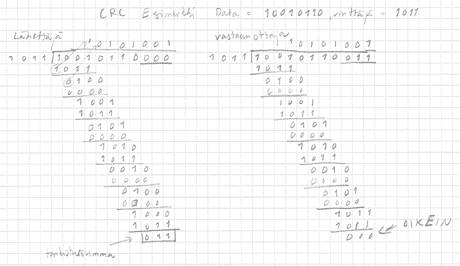 CRC Esimerkki Data = 10010110, virittäjä = 1011
Lähettäjä
10101001
1011 10010110000
1011
0100
0000
1001
1011
0101
0000
1010
1011
0010
0000
0100
0000
1000
1011
011
tarkistussumma
vastaanottaja
10101001
1011 10010110011
1011
0100
0000
1001
1011
0101
0000
1010
1011
0010
0000
0101
0000
1011
1011
000
OIKEIN